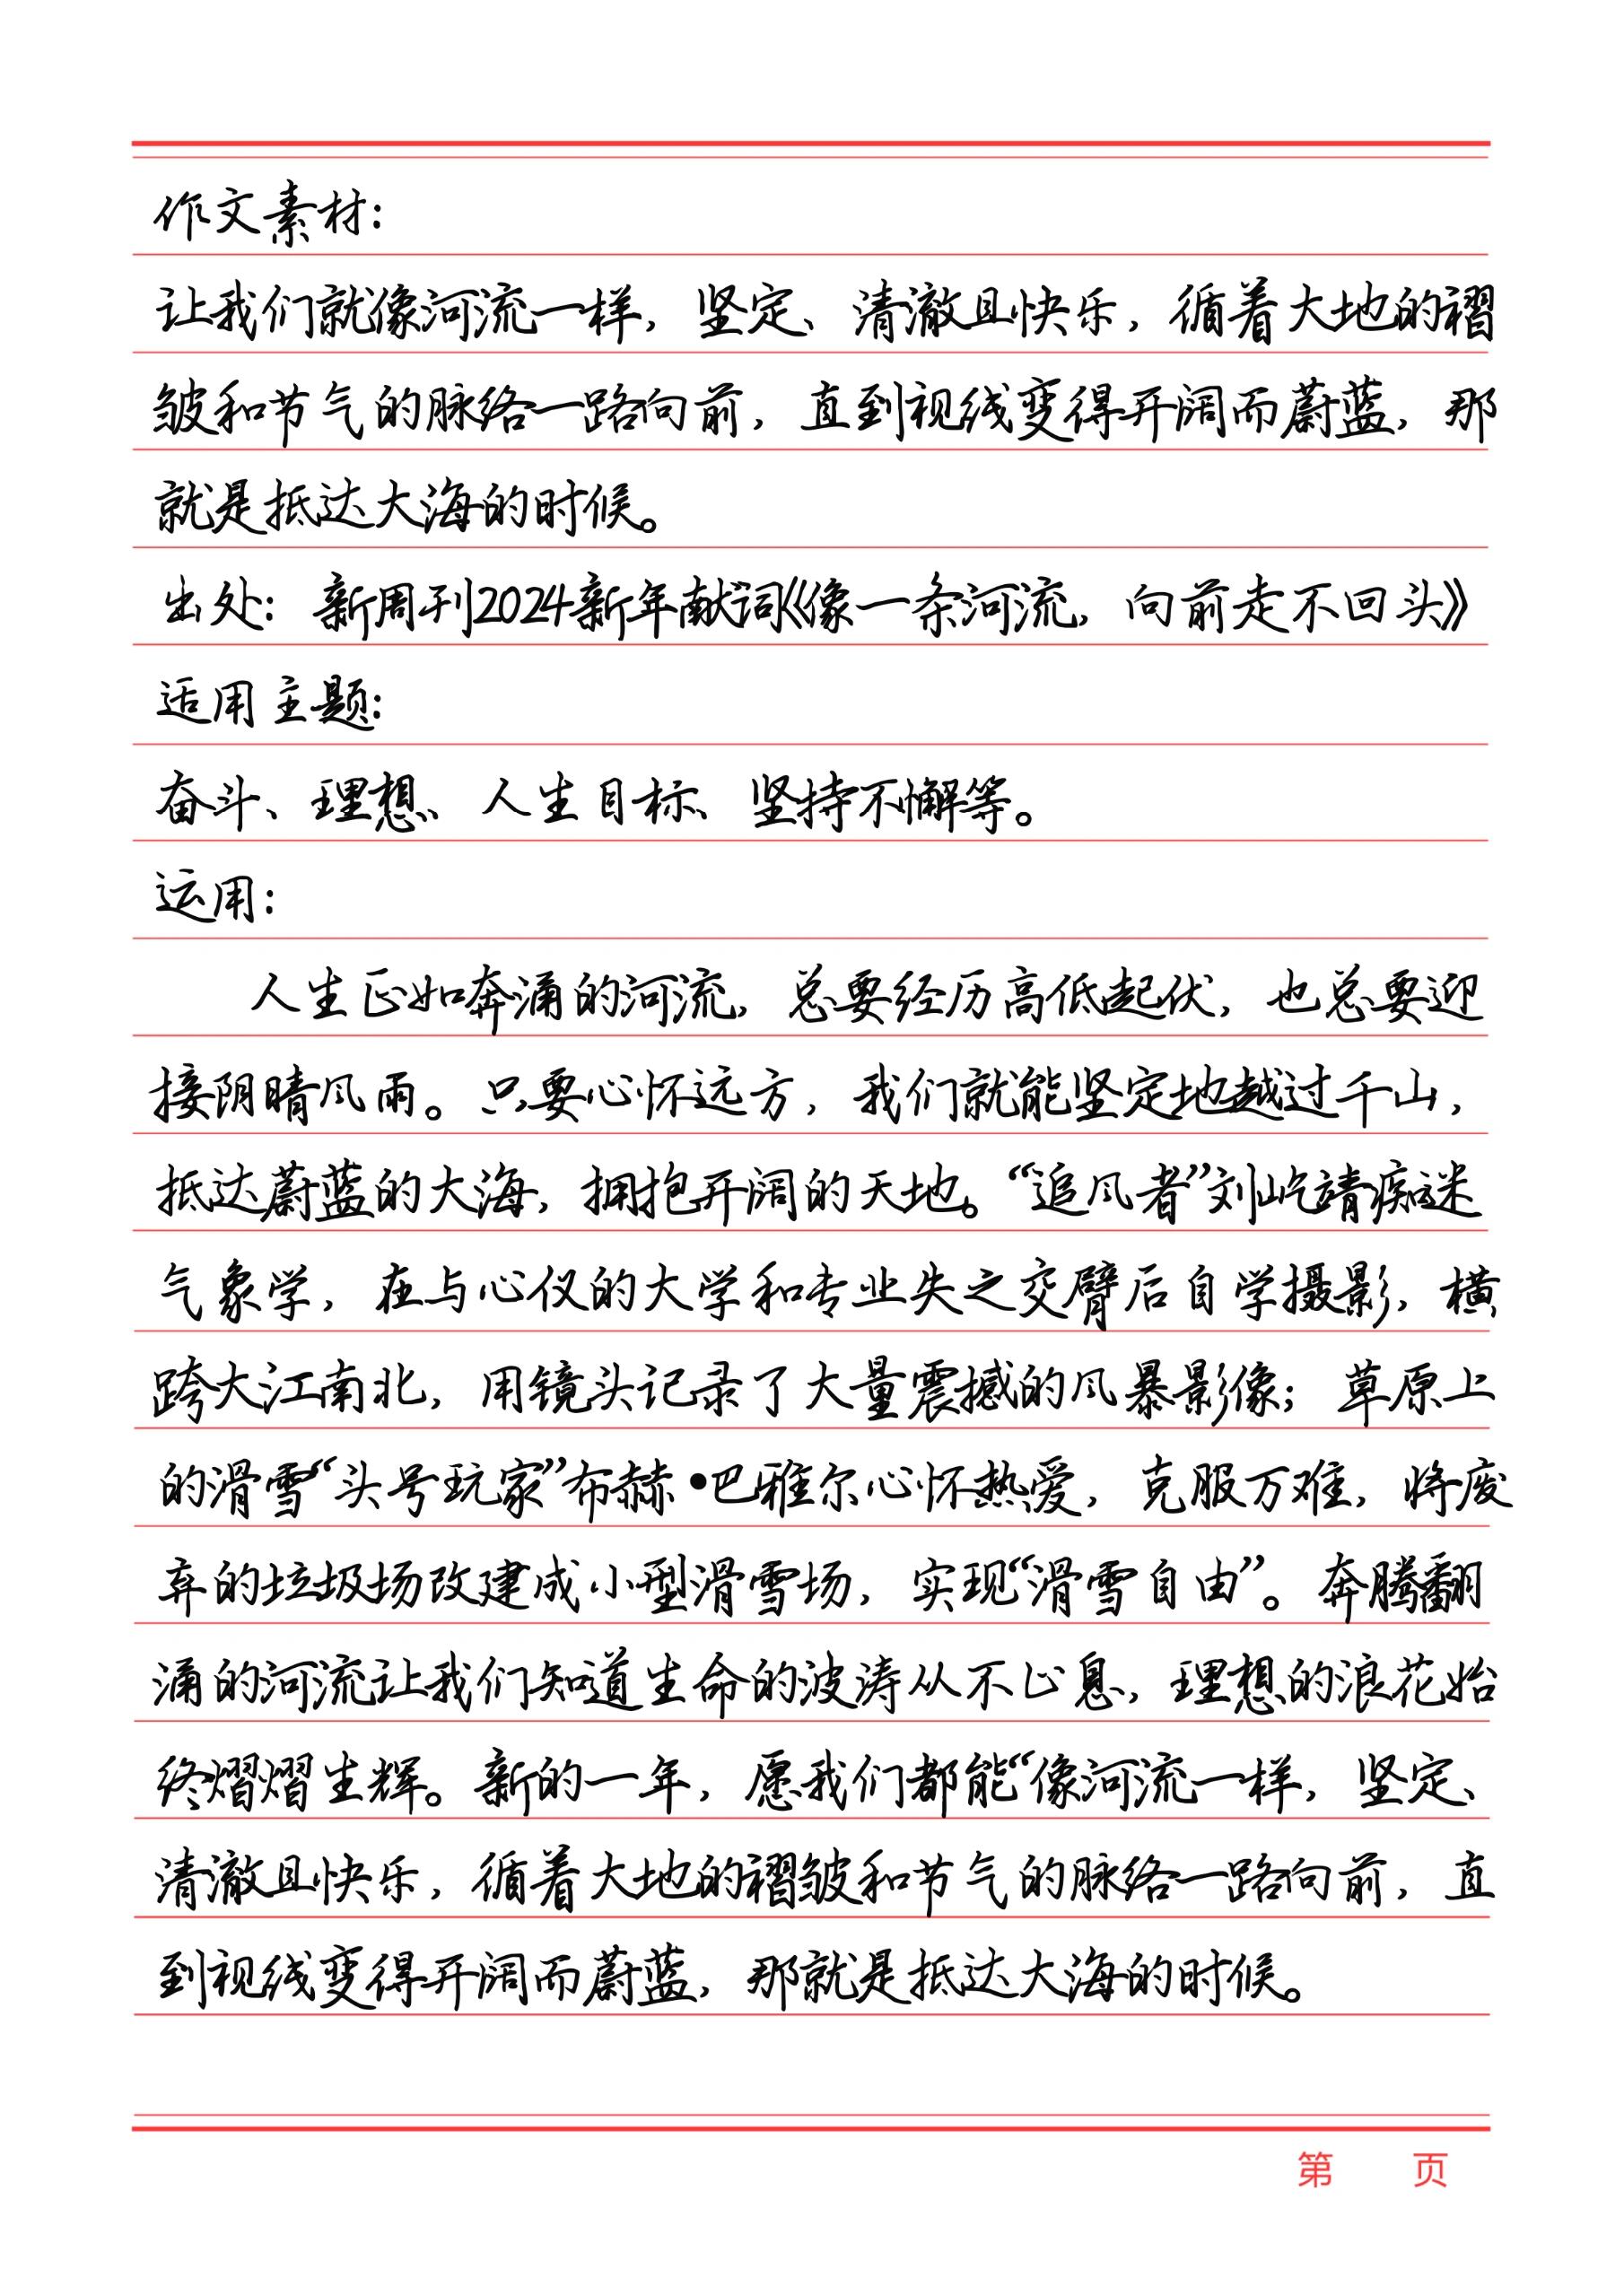 作文素材：
让我们就像河流一样，坚定、清澈且快乐，循着大地的褶
皱和节气的脉络一路向前，直到视线变得开阔而蔚蓝，那
就是抵达大海的时候。
出处：新周刊2024新年献词《像一条河流，向前走不回头》
适用主题：
奋斗、理想、人生目标、坚持不懈等。
运用：
人生正如奔涌的河流，总要经历高低起伏，也总要迎
接阴晴风雨。只要心怀远方，我们就能坚定地越过千山，
抵达蔚蓝的大海，拥抱开阔的天地。“追风者”刘屹靖痴迷
气象学，在与心仪的大学和专业失之交臂后自学摄影，横
跨大江南北，用镜头记录了大量震撼的风暴影像；草原上
的滑雪“头号玩家”布赫•巴雅尔心怀热爱，克服万难，将废
弃的垃圾场改建成小型滑雪场，实现“滑雪自由”。奔腾翻
涌的河流让我们知道生命的波涛从不止息，理想的浪花始
终熠熠生辉。新的一年，愿我们都能“像河流一样，坚定、
清澈且快乐，循着大地的褶皱和节气的脉络一路向前，直
到视线变得开阔而蔚蓝，那就是抵达大海的时候。
第 页